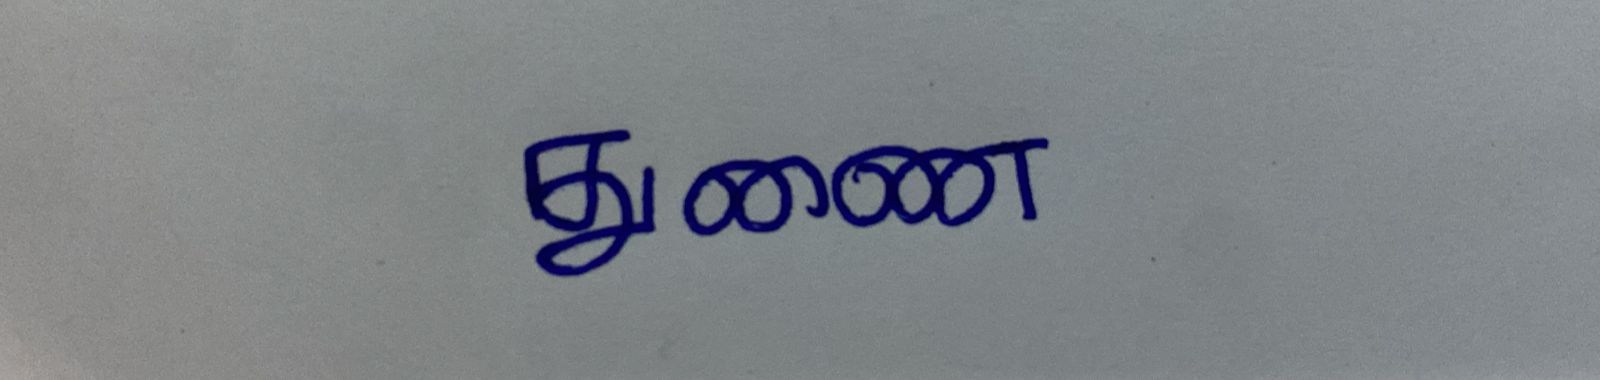 துணை